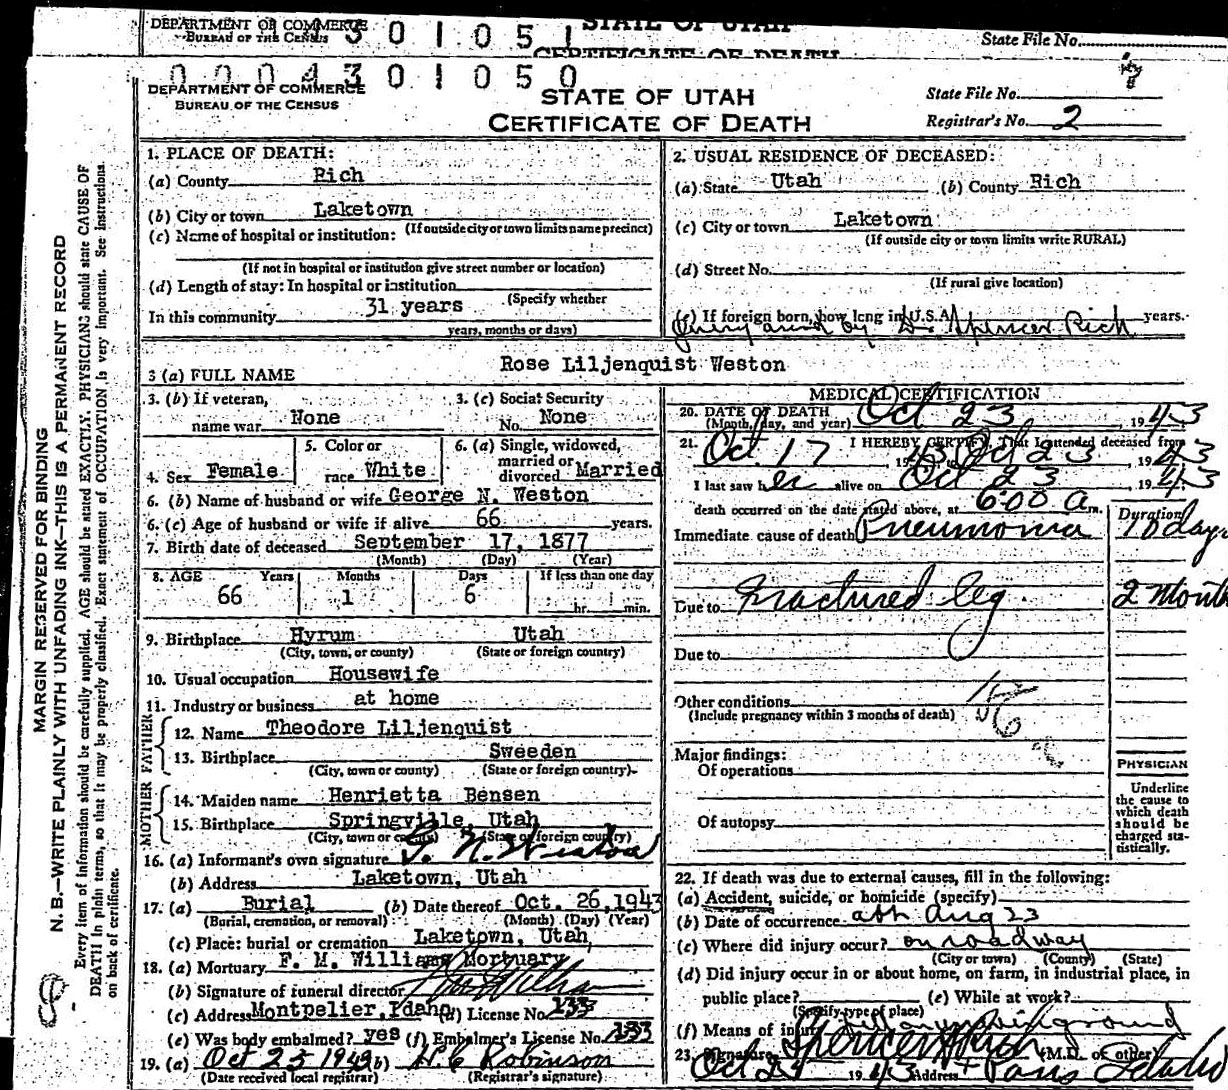 DEPARTMENT OF COMMERCE
BUREAU OF THE CENSUS
4301051
STATE OF UTAH
CERTIFICATE OF DEATH
State File No.
0004301050
DEPARTMENT OF COMMERCE
BUREAU OF THE CENSUS
STATE OF UTAH
CERTIFICATE OF DEATH
State File No.
Registrar's No. 2
MARGIN RESERVED FOR BINDING
N. B.—WRITE PLAINLY WITH UNFADING INK—THIS IS A PERMANENT RECORD
Every item of information should be carefully supplied. AGE should be stated EXACTLY. PHYSICIANS should state CAUSE OF
DEATH in plain terms, so that it may be properly classified. Exact statement of OCCUPATION is very important. See instructions
on back of certificate.
1. PLACE OF DEATH:
(a) County Rich
(b) City or town Laketown
(If outside city or town limits name precinct)
(c) Name of hospital or institution:
(If not in hospital or institution give street number or location)
(d) Length of stay: In hospital or institution
(Specify whether
In this community 31 years
years, months or days)
2. USUAL RESIDENCE OF DECEASED:
(a) State Utah (b) County Rich
(c) City or town Laketown
(If outside city or town limits write RURAL)
(d) Street No.
(If rural give location)
(e) If foreign born, how long in U.S.A. years.
by D. Spencer Rich
3 (a) FULL NAME Rose Liljenquist Weston
3. (b) If veteran,
name war None
3. (c) Social Security
No. None
4. Sex Female
5. Color or
race White
6. (a) Single, widowed,
married or
divorced Married
6. (b) Name of husband or wife George N. Weston
6. (c) Age of husband or wife if alive 66 years.
7. Birth date of deceased September 17, 1877
(Month) (Day) (Year)
8. AGE Years Months Days If less than one day
66 1 6 hr. min.
9. Birthplace Hyrum Utah
(City, town, or county) (State or foreign country)
10. Usual occupation Housewife
11. Industry or business at home
FATHER
12. Name Theodore Liljenquist
13. Birthplace Sweeden
(City, town or county) (State or foreign country)
MOTHER
14. Maiden name Henrietta Bensen
15. Birthplace Springville, Utah
(City, town or county) (State or foreign country)
16. (a) Informant's own signature G. N. Weston
(b) Address Laketown, Utah
17. (a) Burial (b) Date thereof Oct. 26, 1943
(Burial, cremation, or removal) (Month) (Day) (Year)
(c) Place: burial or cremation Laketown, Utah
18. (a) Mortuary F. M. Williams Mortuary
(b) Signature of funeral director
(c) Address Montpelier, Idaho (d) License No. 133
(e) Was body embalmed? yes (f) Embalmer's License No. 133
19. (a) Oct 25 1943 (b) N. C. Robinson
(Date received local registrar) (Registrar's signature)
MEDICAL CERTIFICATION
20. DATE OF DEATH
(Month, day, and year) Oct 23, 1943
21. I HEREBY CERTIFY, That I attended deceased from
Oct. 17, 1943 to Oct 23, 1943
I last saw her alive on Oct 23, 1943
death occurred on the date stated above, at 6:00 a m.
Duration
Immediate cause of death Pneumonia 10 days
Due to Fractured leg 2 Month
Due to
Other conditions
(Include pregnancy within 3 months of death)
Major findings:
Of operations
Of autopsy
PHYSICIAN
Underline
the cause to
which death
should be
charged sta-
tistically.
22. If death was due to external causes, fill in the following:
(a) Accident, suicide, or homicide (specify)
(b) Date of occurrence abt Aug 23
(c) Where did injury occur? on roadway
(City or town) (County) (State)
(d) Did injury occur in or about home, on farm, in industrial place, in
public place? (e) While at work?
(Specify type of place)
(f) Means of injury ground
23. Signature Spencer Rich (M.D. or other)
Oct 27 1943 Address Paris Idaho